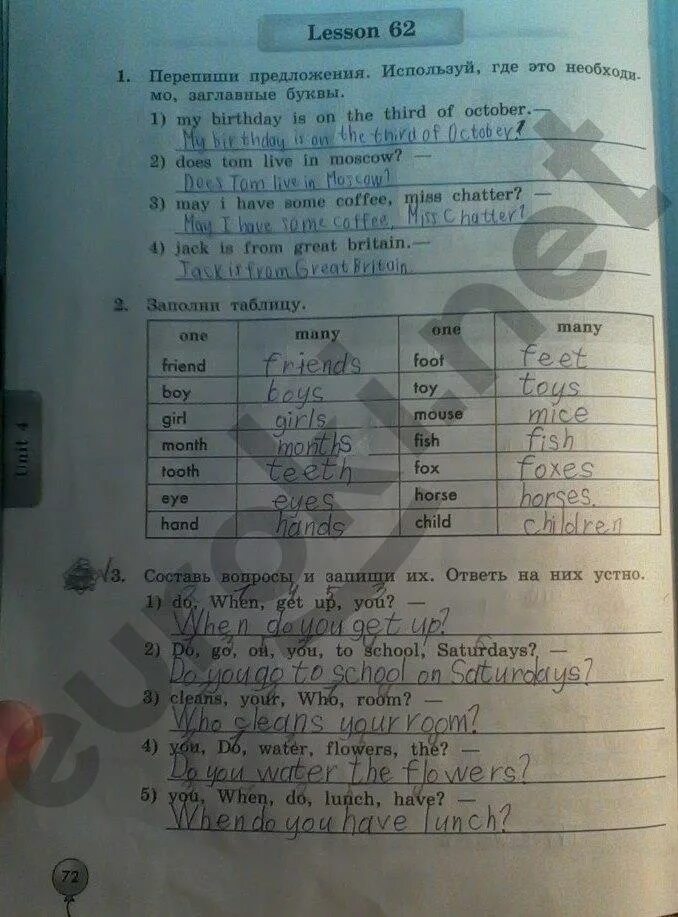 Lesson 62
1. Перепиши предложения. Используй, где это необходи-
мо, заглавные буквы.
1) my birthday is on the third of october.—
My birthday is on the third of October!
2) does tom live in moscow? —
Does Tom live in Moscow?
3) may i have some coffee, miss chatter? —
May I have some coffee, Miss Chatter?
4) jack is from great britain.—
Jack is from Great Britain
2. Заполни таблицу.
one many one many
friend friends foot feet
boy boys toy toys
girl girls mouse mice
month months fish fish
tooth teeth fox foxes
eye eyes horse horses.
hand hands child children
Unit 4
3. Составь вопросы и запиши их. Ответь на них устно.
1) do, When, get up, you? —
When do you get up?
2) Do, go, on, you, to school, Saturdays? —
Do you go to school on Saturdays?
3) cleans, your, Who, room? —
Who cleans your room?
4) you, Do, water, flowers, the? —
Do you water the flowers?
5) you, When, do, lunch, have? —
When do you have lunch?
72
euroki.net